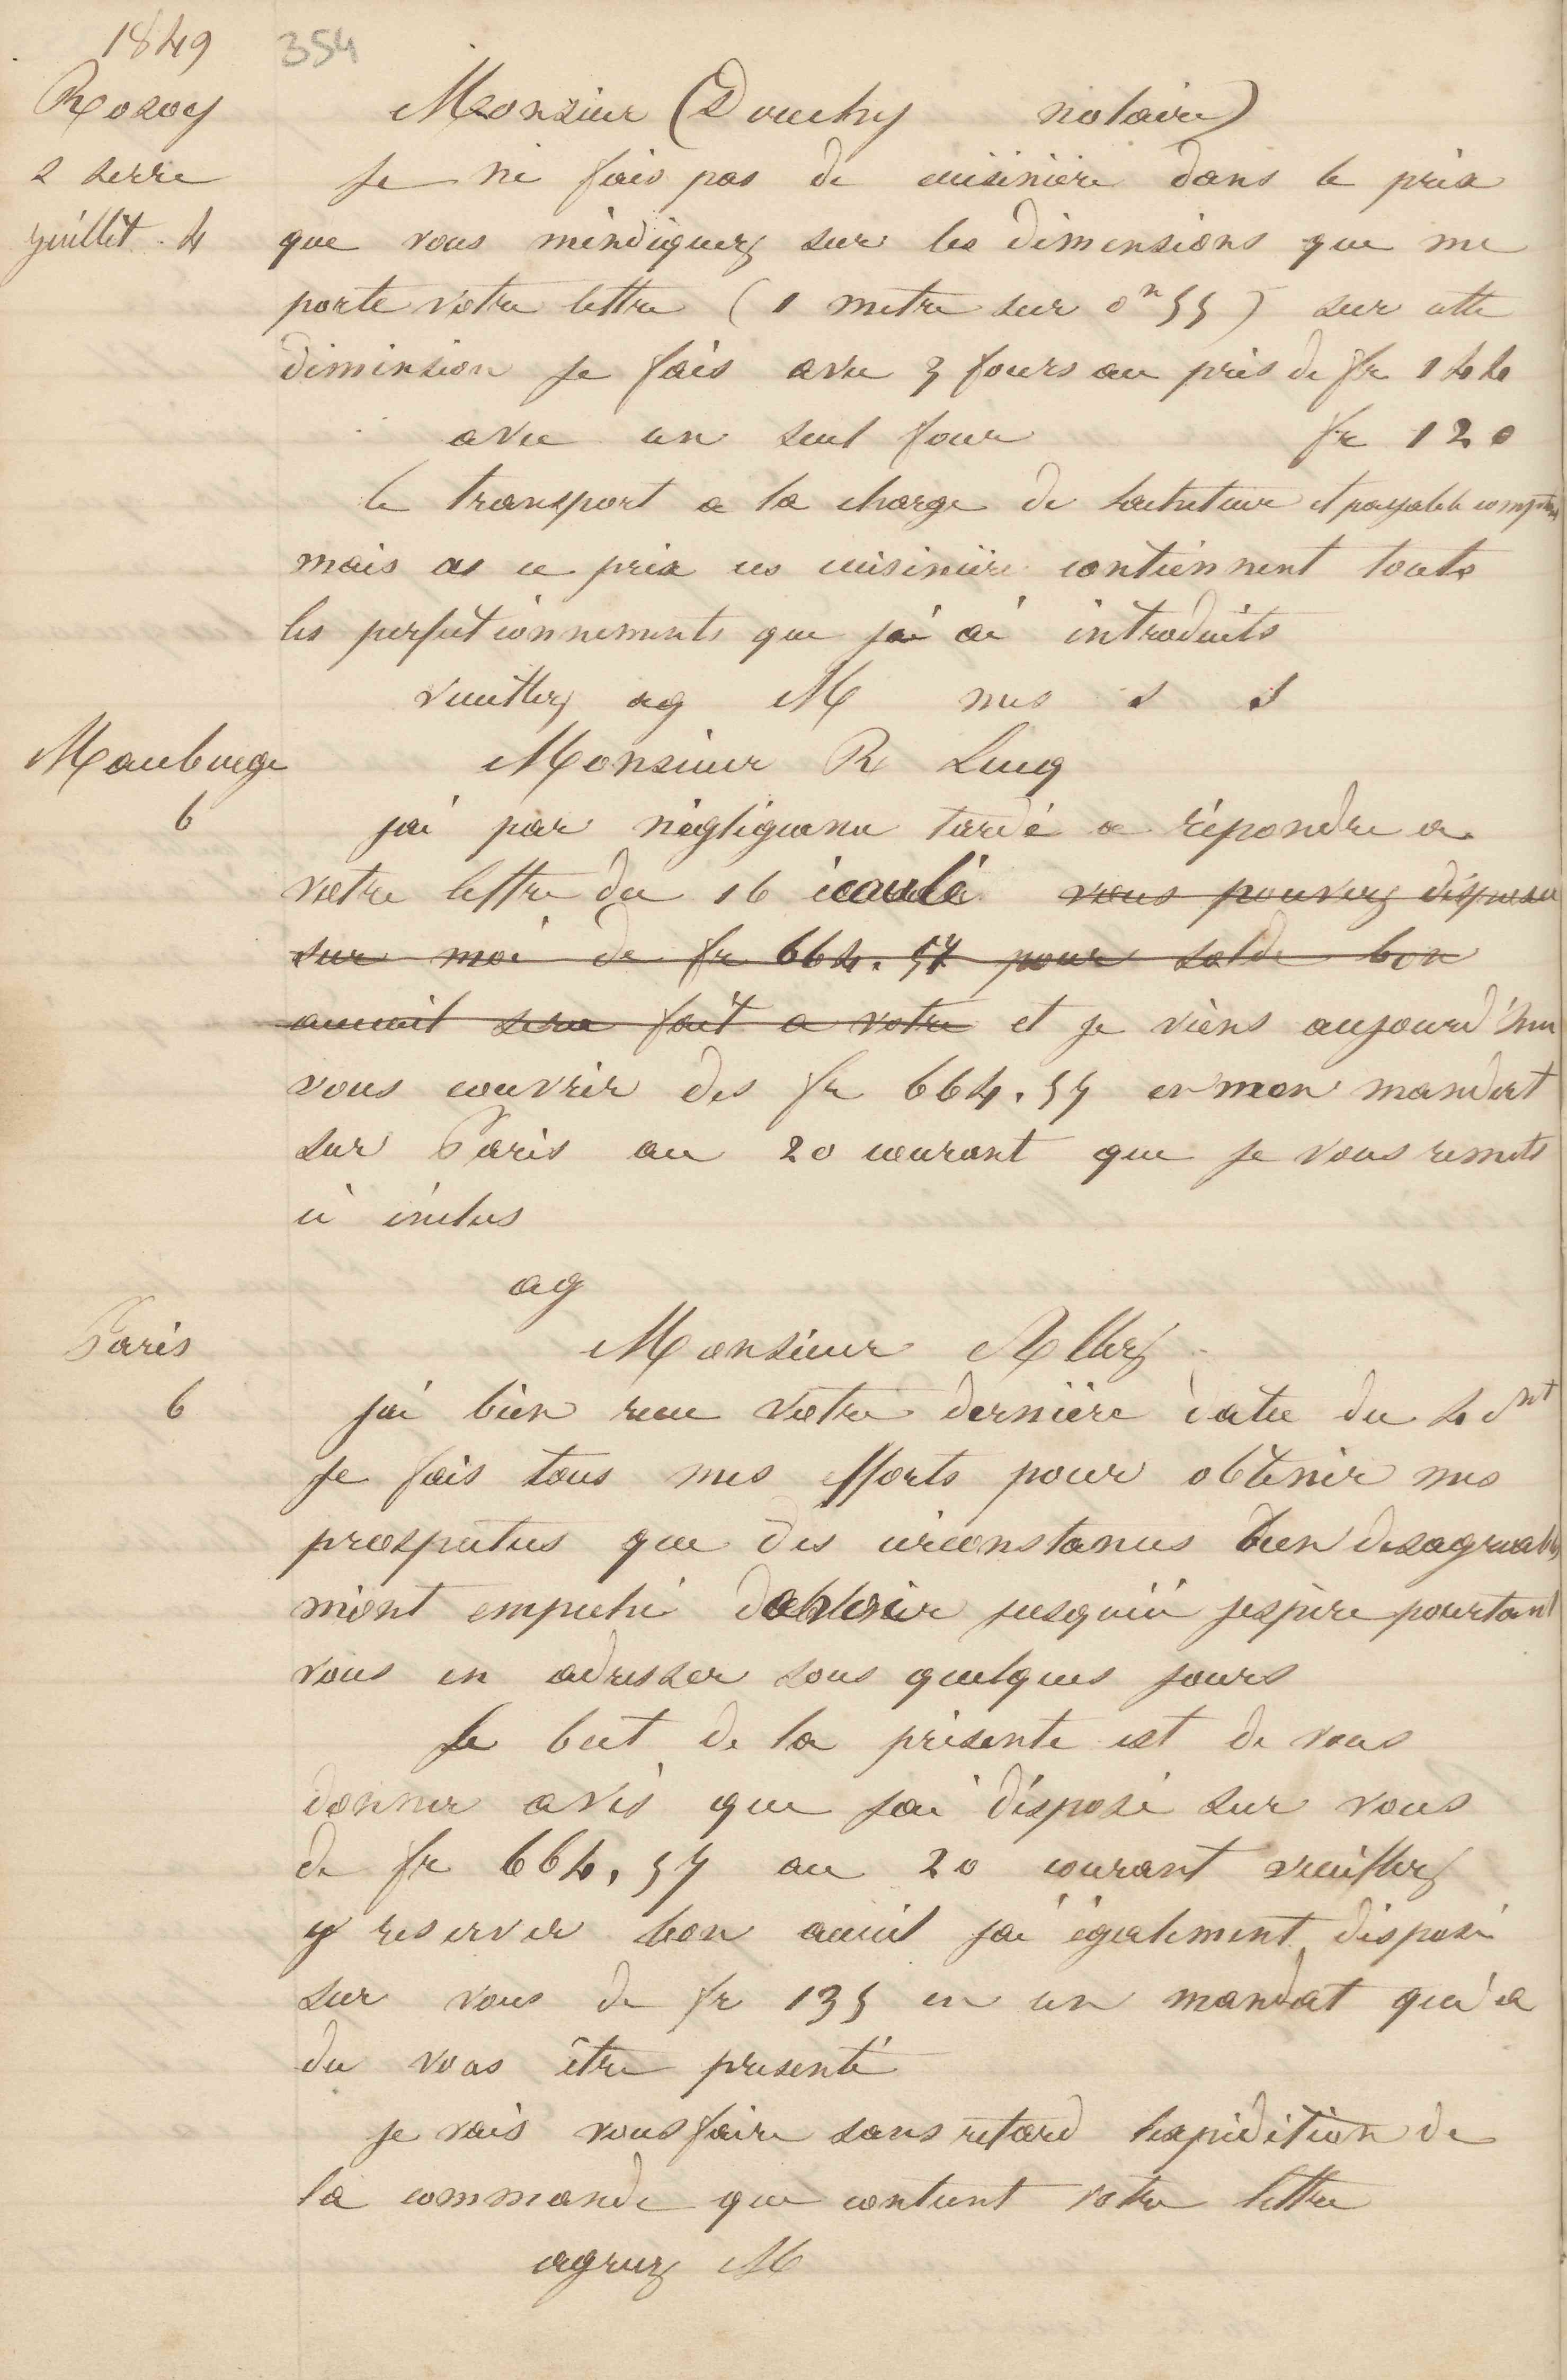 1849 354
Rozoy Monsieur (Douchy notaire)
s serre Je ne fais pas de cuisiniere dans le prix
juillet . 4 que vous m'indiquez sur les dimensions que me
porte votre lettre ( 1 metre sur 0m 55 ) sur cette
dimension Je fais avec 3 fours au prix de fr 144
avec un seul four fr 120
le transport a la charge de lacheteur et payable comptant
mais as ce prix ces cuisinière contiennent touts
les perfectionnements que j'ai ai introduits
veuillez ag M mes s s
Maubeuge Monsieur R Lucq
6 jai par négligeance tardé a répondre a
votre lettre du 16 écoulé vous pouvez disposer
sur moi de fr 664.57 pour solde bon
accueil sera fait a votre et je viens aujourd'hui
vous couvrir des fr 664.57 en mon mandat
sur Paris au 20 courant que je vous remets
ci inclus
ag
Paris Monsieur Allez
6 jai bien recu votre dernière datée du 4 ct
Je fais tous mes efforts pour obtenir mes
prospectus que des circonstances bien desagreables
m'ont empeché d'obtenir jusqu'ici j'espère pourtant
vous en adresser sous quelques jours
Le but de la présente est de vous
donner avis que jai disposé sur vous
de fr 664,57 au 20 courant veuillez
y reserver bon accueil jai également disposé
sur vous de fr 135 en un mandat qui a
du vous être presenté
je vais vous faire sans retard lexpédition de
la commande que contient votre lettre
agreez M